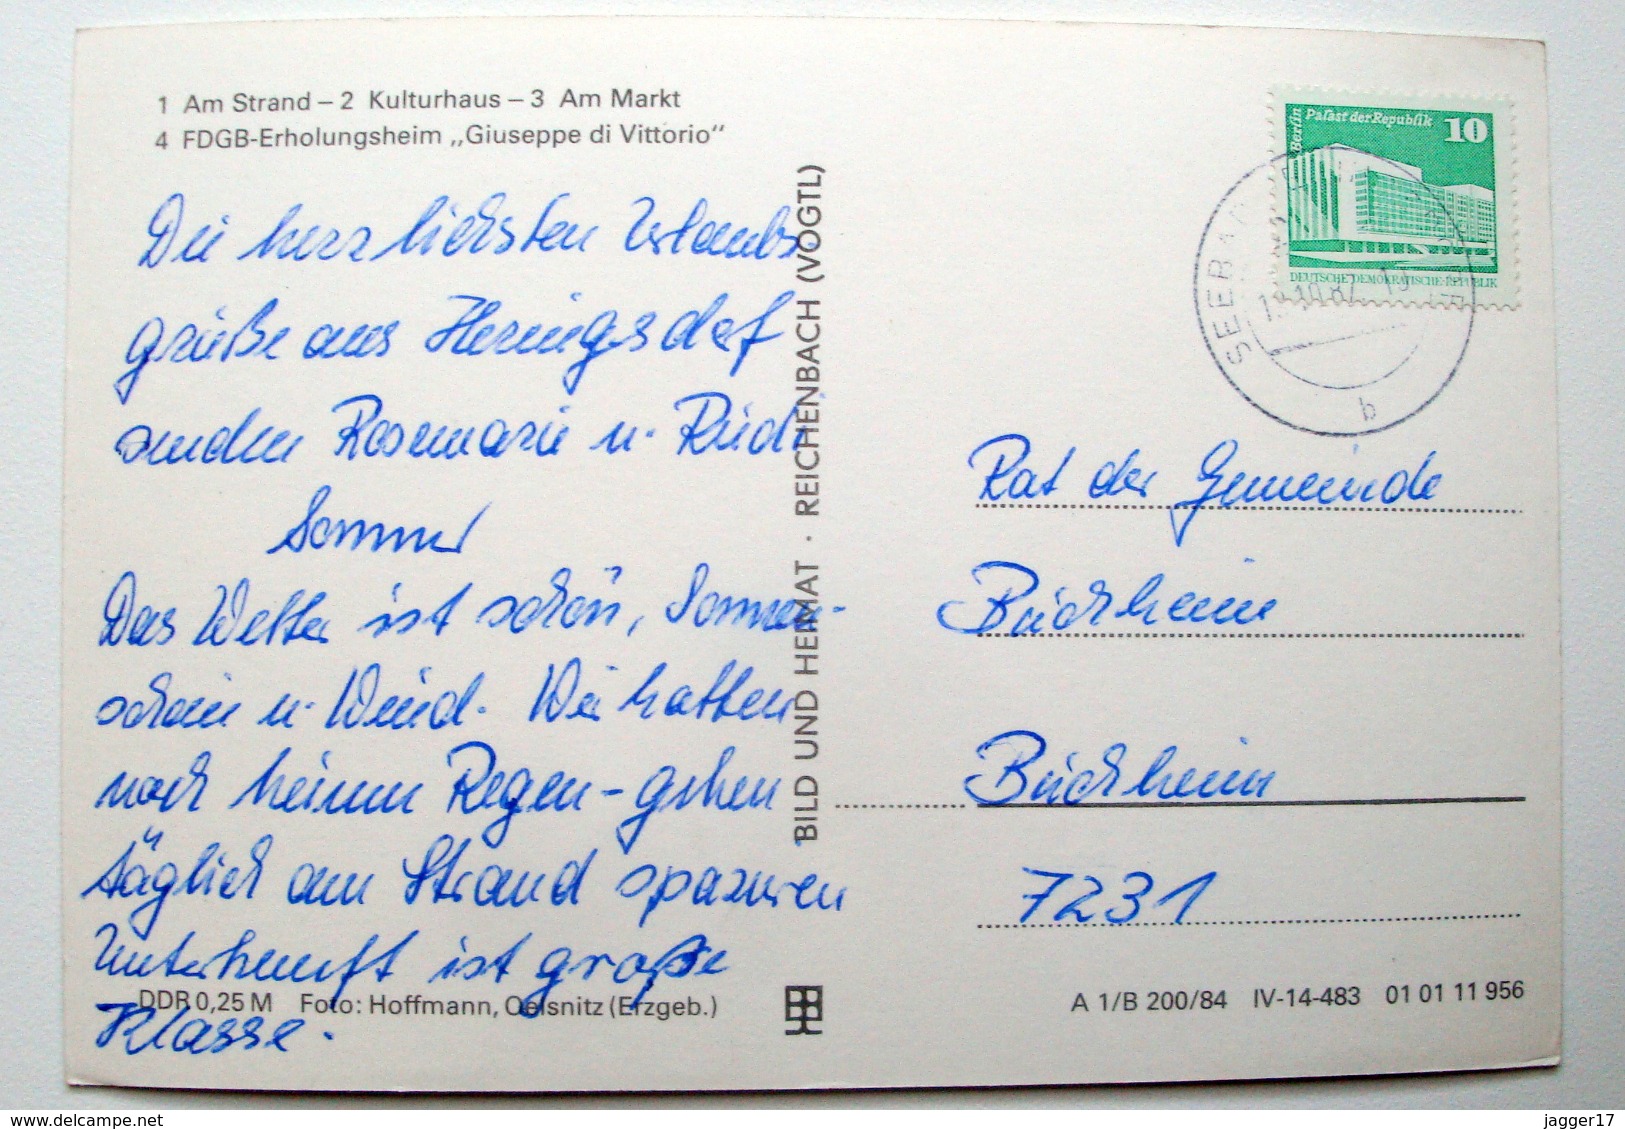 1 Am Strand – 2 Kulturhaus – 3 Am Markt
4 FDGB-Erholungsheim „Giuseppe di Vittorio"
Die herzlichsten Urlaubs-
grüße aus Heringsdorf
senden Rosemarie u. Rudi
Sommer
Das Wetter ist schön, Sonnen-
schein u. Wind. Wir hatten
noch keinen Regen - gehen
täglich am Strand spazieren
Unterkunft ist große
Klasse.
DDR 0,25 M Foto: Hoffmann, Oelsnitz (Erzgeb.)
BILD UND HEIMAT · REICHENBACH (VOGTL)
Berlin
Palast der Republik
10
DEUTSCHE DEMOKRATISCHE REPUBLIK
SEEBAD
b
Rat der Gemeinde
Buchheim
Buchheim
7231
A 1/B 200/84 IV-14-483 01 01 11 956
https://www.delcampe.net
jagger17